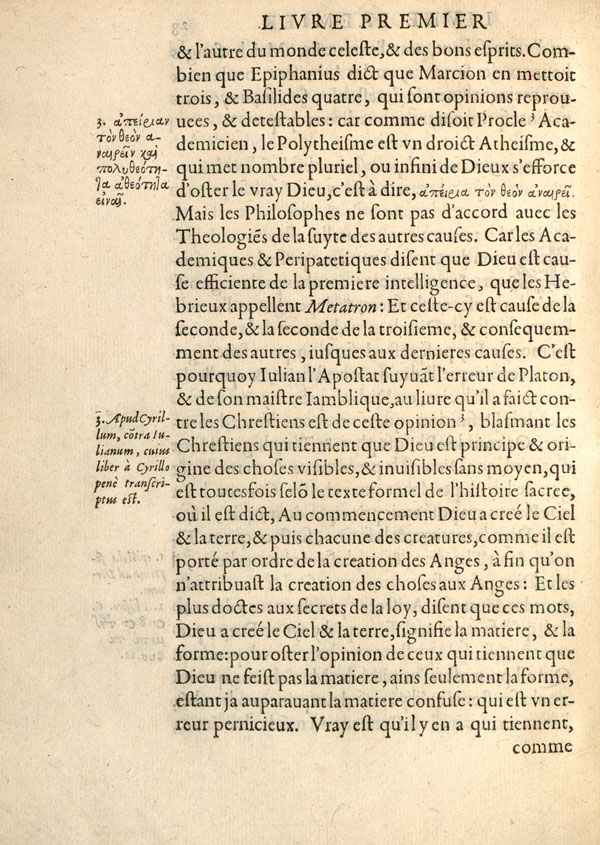 LIVRE PREMIER
& l'autre du monde celeste, & des bons esprits. Com-
bien que Epiphanius dict que Marcion en mettoit
trois, & Basilides quatre, qui sont opinions reprou-
uees, & detestables: car comme disoit Procle ³ Aca-
demicien, le Polytheisme est vn droict Atheisme, &
qui met nombre pluriel, ou infini de Dieux s'efforce
d'oster le vray Dieu, c'est à dire, ἀπειρία τὸν θεὸν ἀναιρεῖ.
Mais les Philosophes ne sont pas d'accord auec les
Theologiẽs de la suyte des autres causes. Car les Aca-
demiques & Peripatetiques disent que Dieu est cau-
se efficiente de la premiere intelligence, que les He-
brieux appellent Metatron: Et ceste-cy est cause de la
seconde, & la seconde de la troisieme, & consequem-
ment des autres, iusques aux dernieres causes. C'est
pourquoy Iulian l'Apostat suyuãt l'erreur de Platon,
& de son maistre Iamblique, au liure qu'il a faict con-
tre les Chrestiens est de ceste opinion ³, blasmant les
Chrestiens qui tiennent que Dieu est principe & ori-
gine des choses visibles, & inuisibles sans moyen, qui
est toutesfois selõ le texte formel de l'histoire sacree,
où il est dict, Au commencement Dieu a creé le Ciel
& la terre, & puis chacune des creatures, comme il est
porté par ordre de la creation des Anges, à fin qu'on
n'attribuast la creation des choses aux Anges: Et les
plus doctes aux secrets de la loy, disent que ces mots,
Dieu a creé le Ciel & la terre, signifie la matiere, & la
forme: pour oster l'opinion de ceux qui tiennent que
Dieu ne feist pas la matiere, ains seulement la forme,
estant ja auparauant la matiere confuse: qui est vn er-
reur pernicieux. Vray est qu'il y en a qui tiennent,
comme
3. ἀπείριαν
τὸν θεὸν ἀ-
ναιρεῖν καὶ
πολυθεότη-
τα ἀθεότητα
εἶναι.
3. Apud Cyril-
lum, cõtra Iu-
lianum, cuius
liber à Cyrillo
penè transcri-
ptus est.